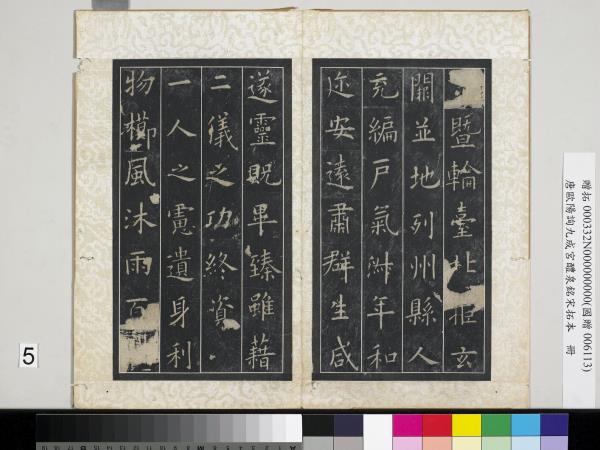 暨輪臺北拒玄
闕並地列州縣人
充編戶氣淑年和
迩安遠肅群生咸
遂靈貺畢臻雖藉
二儀之功終資
一人之慮遺身利
物櫛風沐雨百
贈拓 000332N000000000(國贈 006113)
唐歐陽詢九成宮醴泉銘宋拓本 冊
5